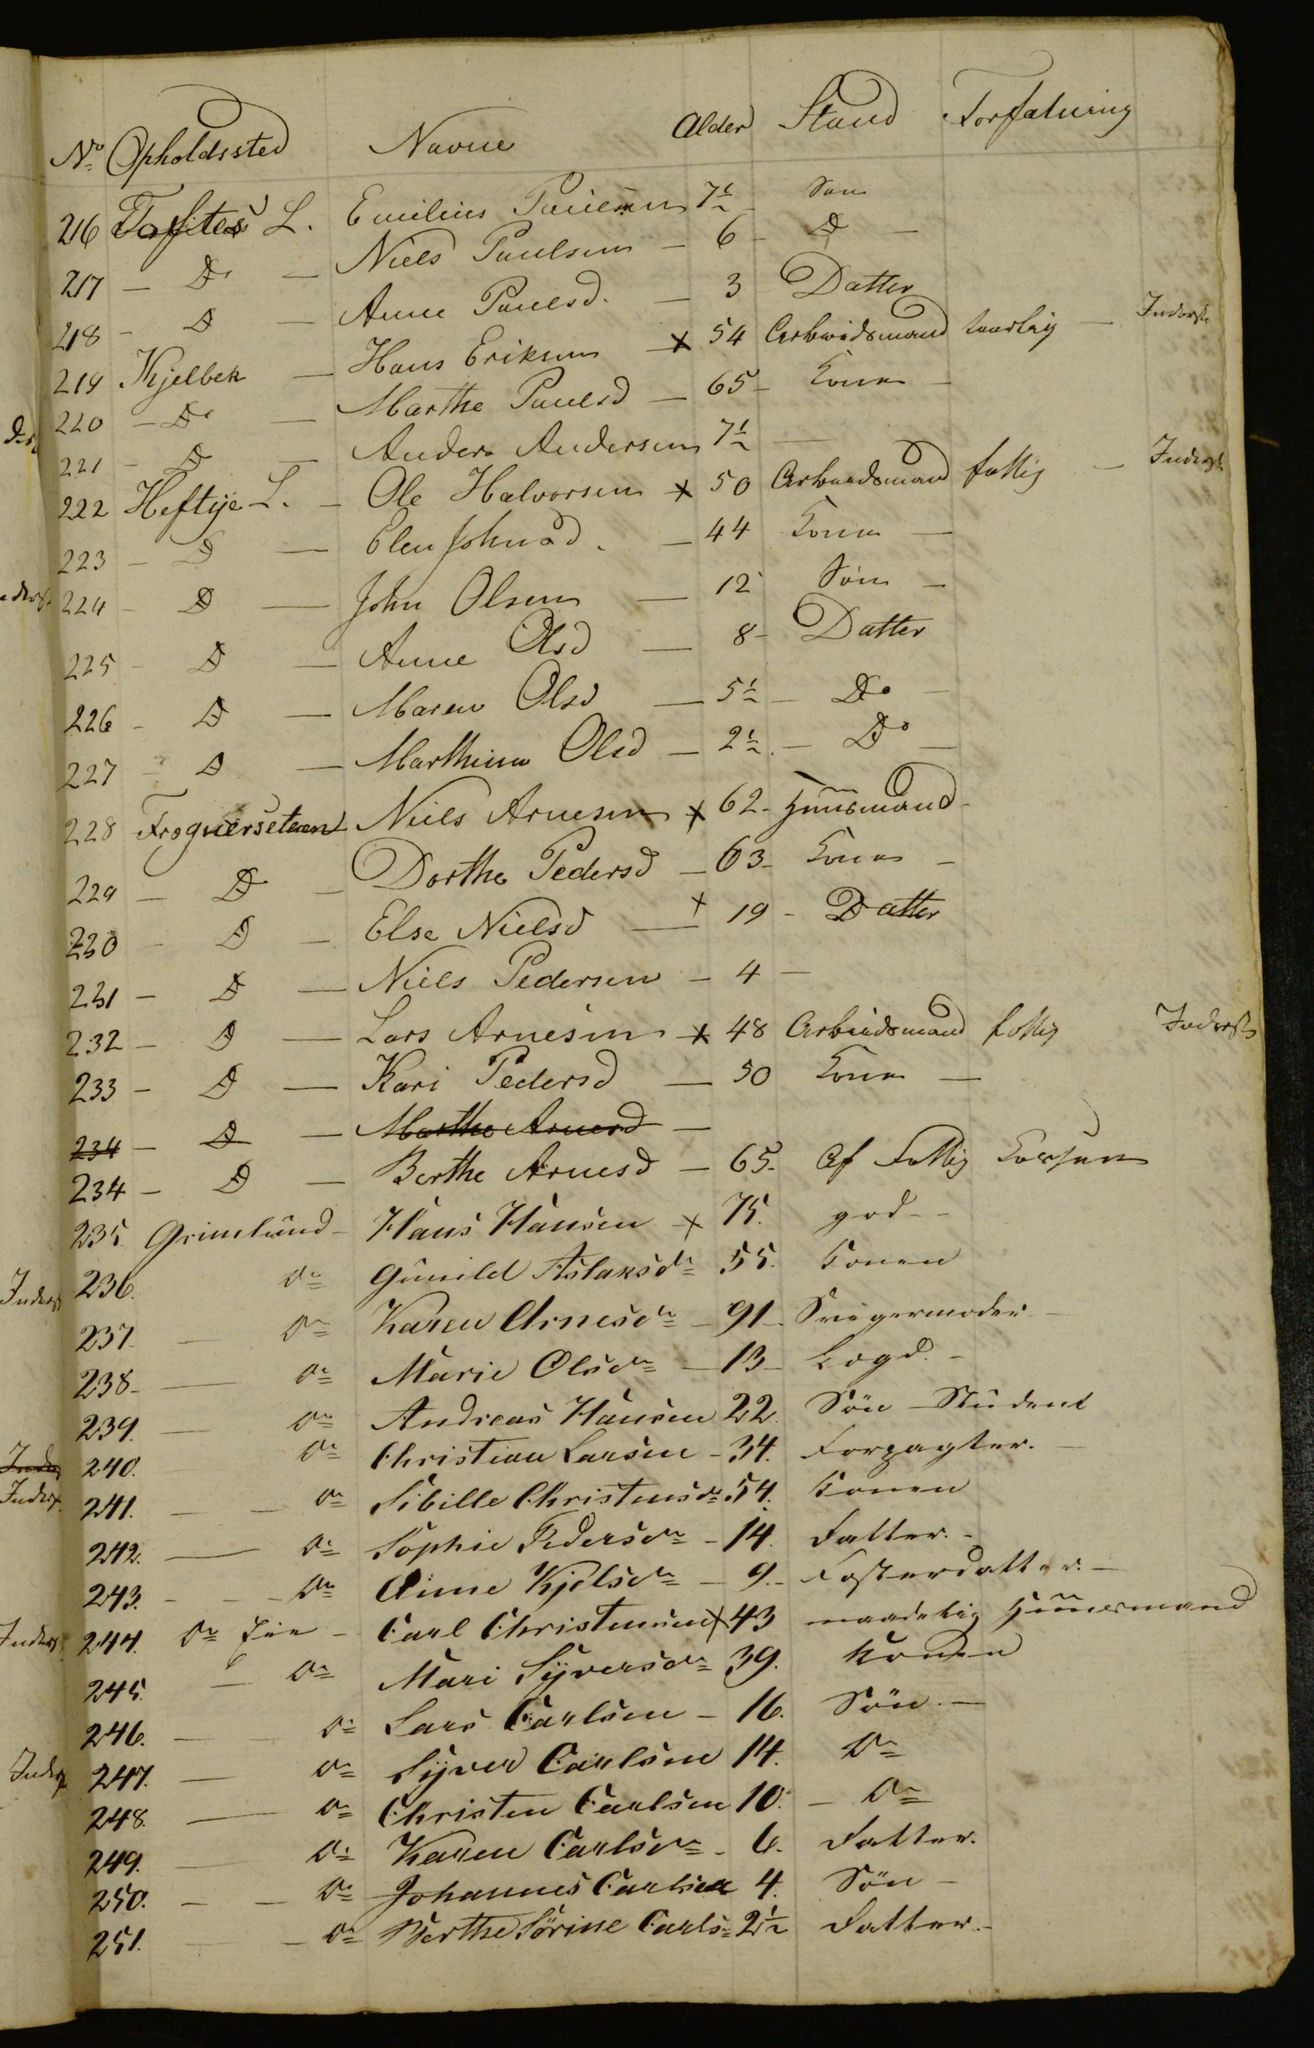 No Opholdssted Navne Alder Stand Forfatning
216 Toftes L. Emilius Paulsen 7½ Søn
217 - Do - Niels Paulsen - 6 - Do -
218 - Do - Anne Paulsd. - 3 Datter
219 Kjelbek - Hans Eriksen x 54 Arbeidsmand Inderst
220 - Do - Marthe Paulsd - 65 - Kone -
221 - Do - Anders Andersen 7½ -
222 Heftye L. - Ole Halvorsen x 50 Arbeidsmand fattig - Inderst
223 - Do - Elen Johnsd. - 44 Kone -
224 - Do - John Olsen - 12 Søn -
225 - Do - Anne Olsd - 8 - Datter
226 - Do - Maren Olsd - 5½ - Do -
227 - Do - Marthine Olsd - 2½ - Do -
228 Frognersæteren Niels Arnesen x 62 - Huusmand -
229 - Do - Dorthe Pedersd - 63 - Kone -
230 - Do - Else Nielsd - x 19 - Datter
231 - Do - Niels Pedersen - 4 -
232 - Do - Lars Arnesen x 48 Arbeidsmand fattig Inderst
233 - Do - Kari Pedersd - 50 Kone -
234 - Do - Marthe Arnesd -
234 - Do - Berthe Arnesd - 65 - Af Fattig Kassen
235. Grimelund - Hans Hansen x 75. god -
236. do Gunild Aslaksdr 55. Konen
237 - do Karen Arnesdr - 91 - Svigermoder -
238 - do Marie Olsdr - 13 - Logd. -
239. - do Andreas Hansen 22. Søn - Student
240. do Christian Larsen - 34. Forpagter. -
241. - do Sibille Christensdr 54. Konen
242. - do Sophie Pedersdr - 14. Datter. -
243. - - do Anne Kjelsdr - 9. - Fosterdatter. -
244. do Eie - Carl Christensen x 43 maadelig Huusmand
245. - do Mari Syversdr 39. Konen
246. - do Lars Carlsen - 16. Søn. -
247. - do Syver Carlsen 14. do
248. - do Christen Carlsen 10. - do
249. - do Karen Carlsdr - 6. Datter.
250. - - do Johannes Carlsen 4. Søn -
251. - do Berthe Sørine Carls= 2½ Datter. -